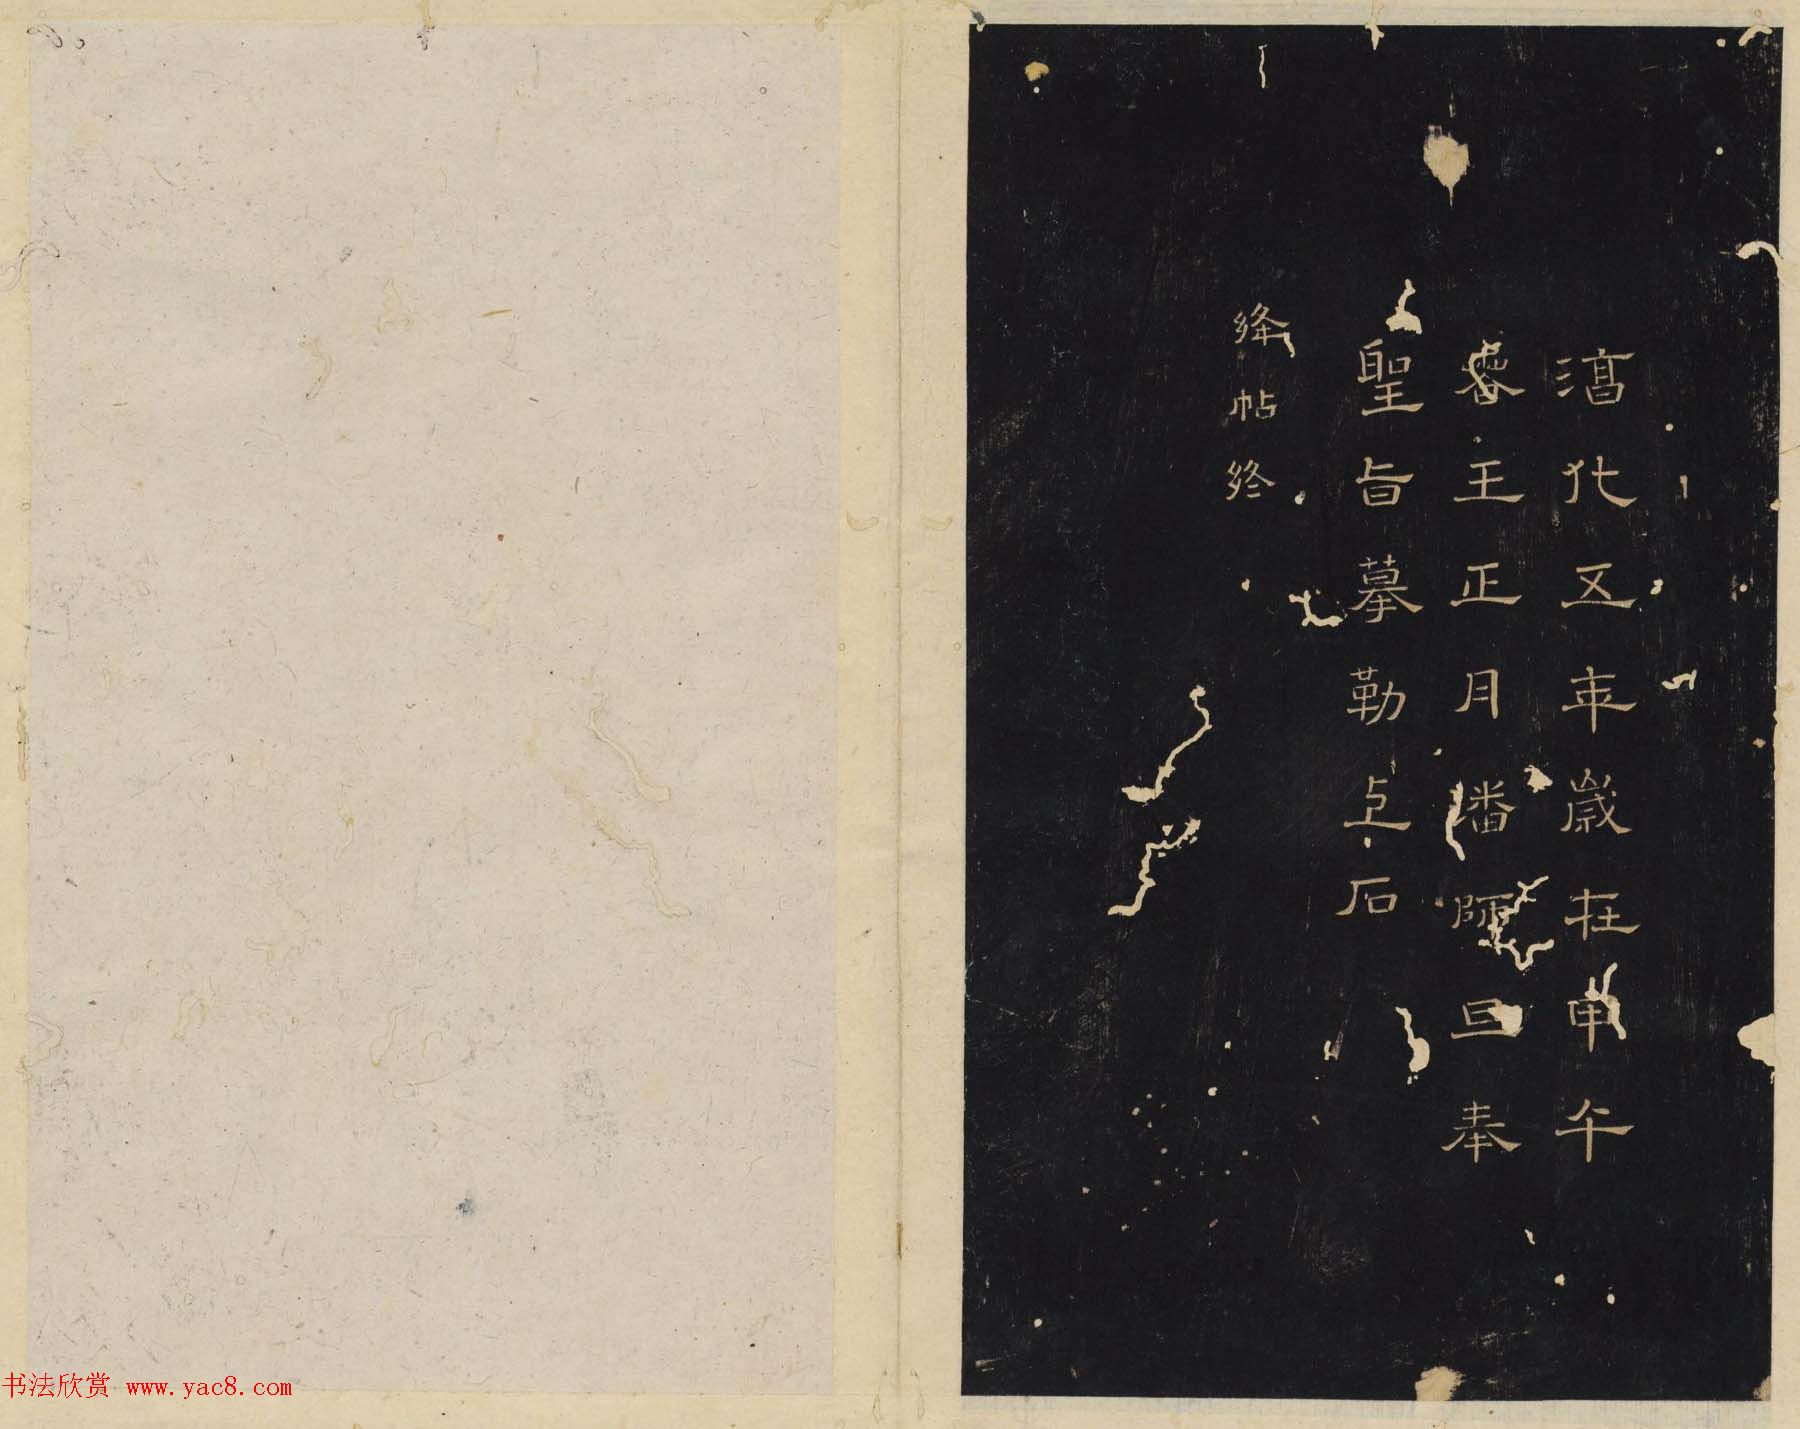 淳化五年歲在甲午
春王正月潘師旦奉
聖旨摹勒上石
絳帖終
书法欣赏 www.yac8.com